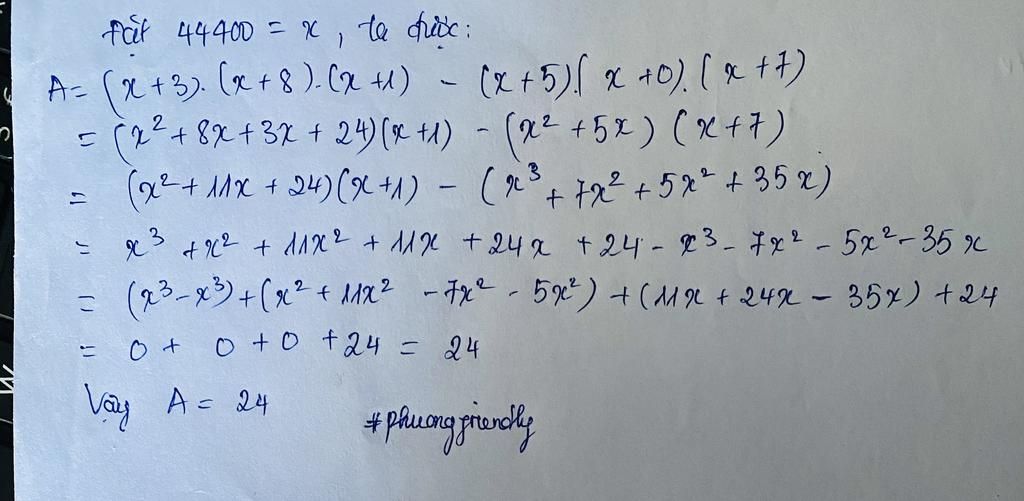 Đặt 44400 = x , ta được:
A = (x+3).(x+8).(x+1) - (x+5).(x+0).(x+7)
= (x² + 8x + 3x + 24)(x+1) - (x² + 5x) (x+7)
= (x² + 11x + 24)(x+1) - (x³ + 7x² + 5x² + 35x)
= x³ + x² + 11x² + 11x + 24x + 24 - x³ - 7x² - 5x² - 35x
= (x³ - x³) + (x² + 11x² - 7x² - 5x²) + (11x + 24x - 35x) + 24
= 0 + 0 + 0 + 24 = 24
Vậy A = 24
#phuongfriendly